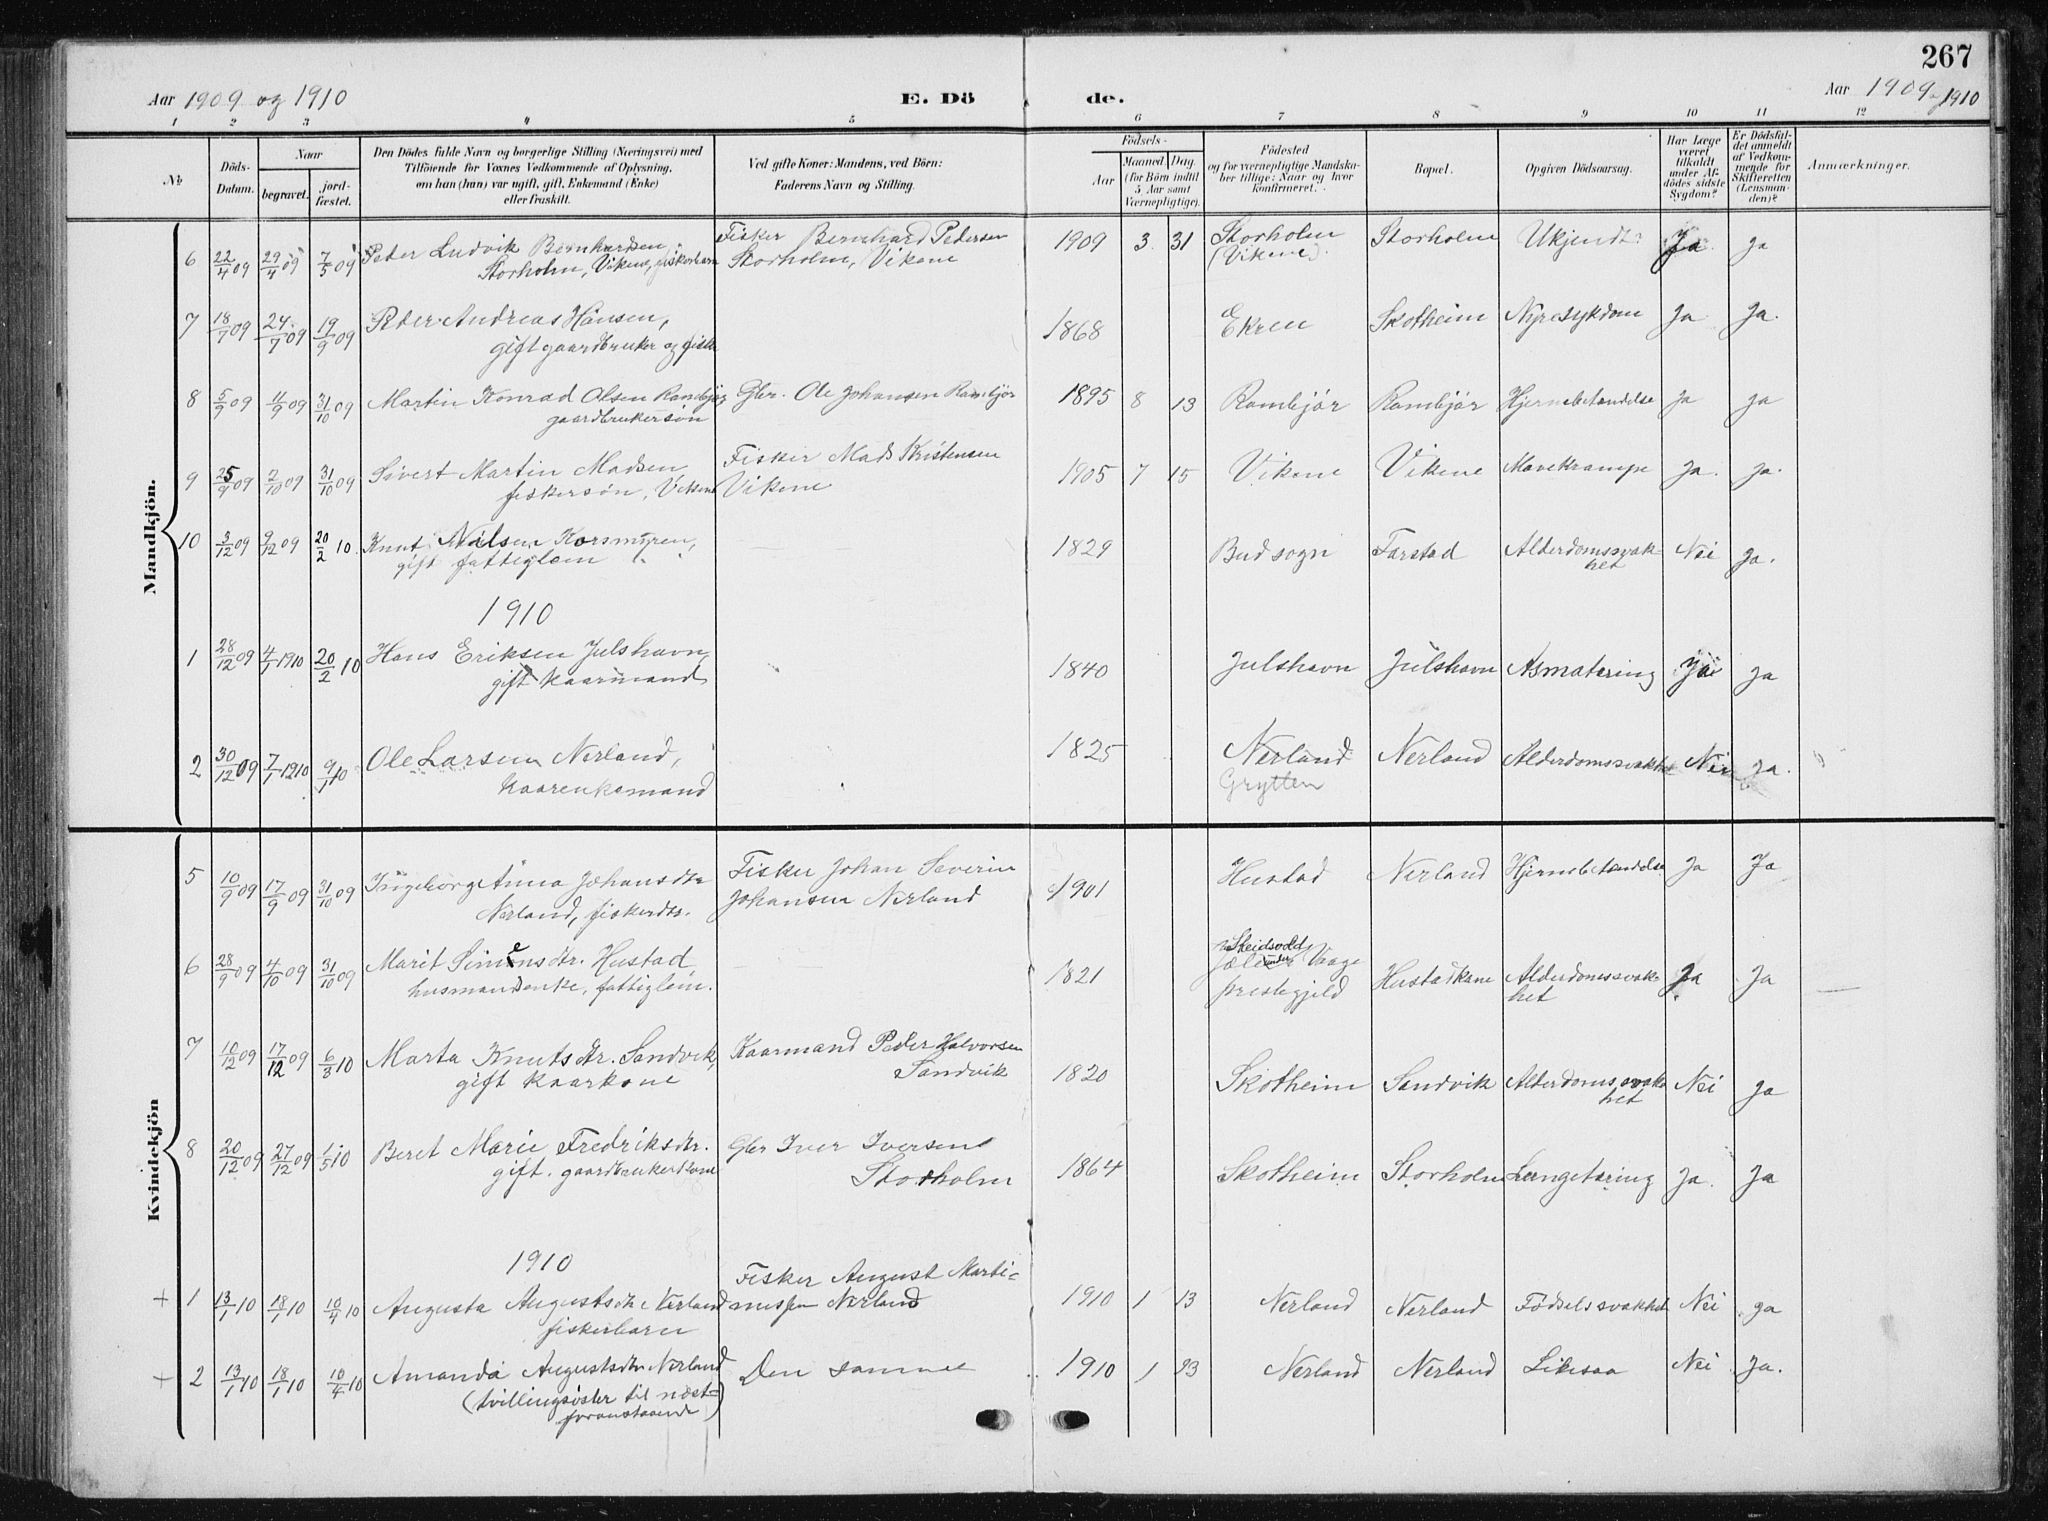 267
Aar 1909 og 1910 E. Dö de. Aar 1909 og 1910
1 2 3 4 5 6 7 8 9 10 11 12
№ Döds-Datum. Naar begravet. jordfæstet. Den Dödes fulde Navn og borgerlige Stilling (Næringsvei) med Tilföiende for Voxnes Vedkommende af Oplysning, om han (hun) var ugift, gift, Enkemand (Enke) eller fraskilt. Ved gifte Koner: Mandens, ved Börn: Faderens Navn og Stilling. Födsels- Aar Maaned. Dag. (for Börn indtil 5 Aar samt Værnepligtige). Födested og for værnepligtige Mandskaber tillige: Naar og hvor konfirmeret. Bopæl. Opgiven Dödsaarsag. Har Læge været tilkaldt under Afdödes sidste Sygdom? Er Dödsfaldet anmeldt af Vedkommende for Skifteretten (Lensmanden)? Anmærkninger.
Mandkjön.
6 22/4 09 29/4 09 7/5 09 Peder Ludvik Bernhardsen Fisker Bernhard Pedersen 1909 3 31 Storholm Storholm Ukjendt Ja ja
Storholm, Vikene, fiskerbarn Storholm, Vikene (Vikene)
7 18/7 09 24/7 09 19/9 09 Peder Andreas Hansen, 1868 Ekren Skotheim Nyresykdom Ja Ja.
gift gaardbruker og fisker
8 5/9 09 11/9 09 31/10 09 Martin Konrad Olsen Rambjør Gbr. Ole Johansen Rambjør 1895 8 13 Rambjør Rambjør Hjernebetændelse Ja Ja
gaardbrukersøn
9 25/9 09 2/10 09 31/10 09 Sivert Martin Madsen Fisker Mads Kristensen 1905 7 15 Vikene Vikene Mavekrampe Ja. Ja.
fiskersøn, Vikene Vikene
10 3/12 09 9/12 09 20/2 10. Knut Nilsen Korsmyren, 1829 Bud sogn Farstad Alderdomssvak-het Nei Ja.
gift fattiglem
1910
1 28/12 09 4/1 1910 20/2 10 Hans Eriksen Julshavn, 1840 Julshavn Julshavn Asmatering Ja Ja
gift kaarmand
2 30/12 09 7/1 1910 9/1 10 Ole Larsen Nerland, 1825 Nerland Nerland Alderdomssvakhet Nei Ja.
kaarenkemand Grytten
Kvindekjön
5 10/9 09 17/9 09 31/10 09 Ingeborg Anna Johansdtr Fisker Johan Severin 1901 Hustad Nerland Hjernebetændelse Ja Ja
Nerland, fiskerdtr. Johansen Nerland
6 28/9 09 4/10 09 31/10 09 Marit Simensdtr. Hustad 1821 Jæle under Vaage Hustadkane Alderdomssvak-het Ja Ja
husmandsenke, fattiglem. prestegjeld
7 10/12 09 17/12 09 6/3 10 Marta Knutsdtr. Sandvik, Kaarmand Peder Halvorsen 1820 Skotheim Sandvik Alderdomssvak-het Nei Ja
gift kaarkone Sandvik
8 20/12 09 27/12 09 1/5 10 Beret Marie Fredriksdtr. Gbr Iver Iversen 1864 Skotheim Storholm Lungetæring Ja. Ja
gift. gaardbrukerkone Storholm
1910
+ 1 13/1 10 18/1 10 10/4 10 Augusta Augustsdtr Nerland Fisker August Marti- 1910 1 13 Nerland Nerland Fødselssvakhet Nei ja
fiskerbarn nussen Nerland
+ 2 13/1 10 18/1 10 10/4 10 Amanda Augustsdtr Nerland Den samme 1910 1 13 Nerland Nerland Likesaa Nei Ja.
(tvillingsøster til næst-
foranstaaende)